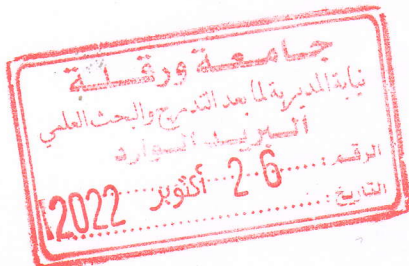 جامعة ورقلة
نيابة المديرية لما بعد التدرج والبحث العلمي
البريد الوارد
الرقم :
2 6 أكتوبر 2022
التاريخ :